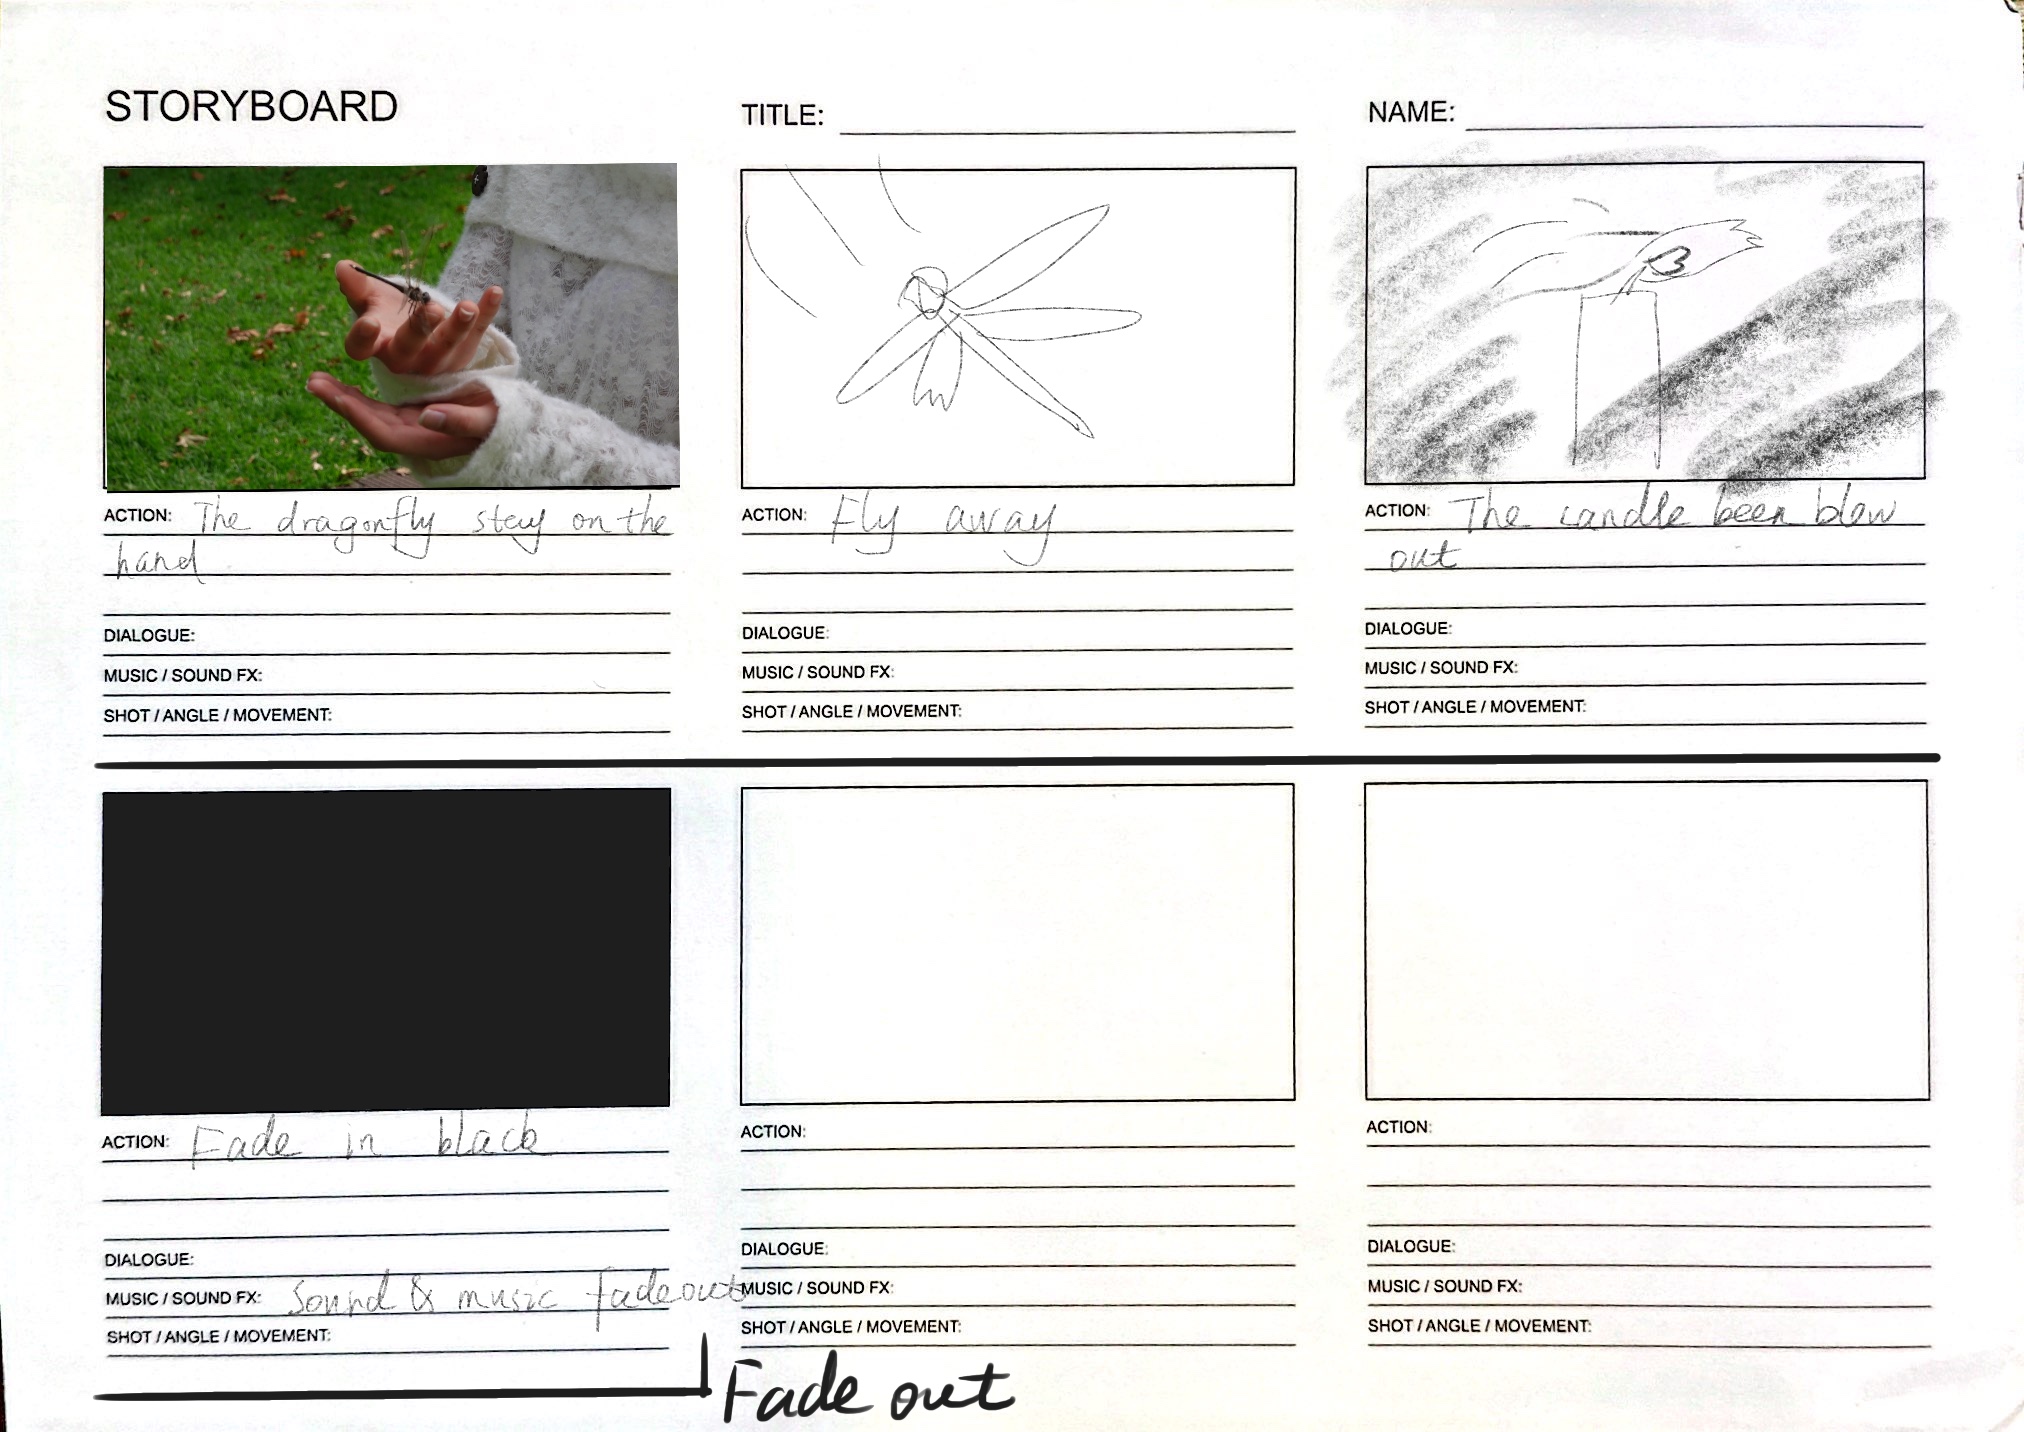 STORYBOARD
TITLE:
NAME:
ACTION: The dragonfly stay on the
hand
DIALOGUE:
MUSIC / SOUND FX:
SHOT / ANGLE / MOVEMENT:
ACTION: Fly away
DIALOGUE:
MUSIC / SOUND FX:
SHOT / ANGLE / MOVEMENT:
ACTION: The candle been blow
out
DIALOGUE:
MUSIC / SOUND FX:
SHOT / ANGLE / MOVEMENT:
ACTION: Fade in black
DIALOGUE:
MUSIC / SOUND FX: Sound & music fadeout
SHOT / ANGLE / MOVEMENT:
ACTION:
DIALOGUE:
MUSIC / SOUND FX:
SHOT / ANGLE / MOVEMENT:
ACTION:
DIALOGUE:
MUSIC / SOUND FX:
SHOT / ANGLE / MOVEMENT:
Fade out